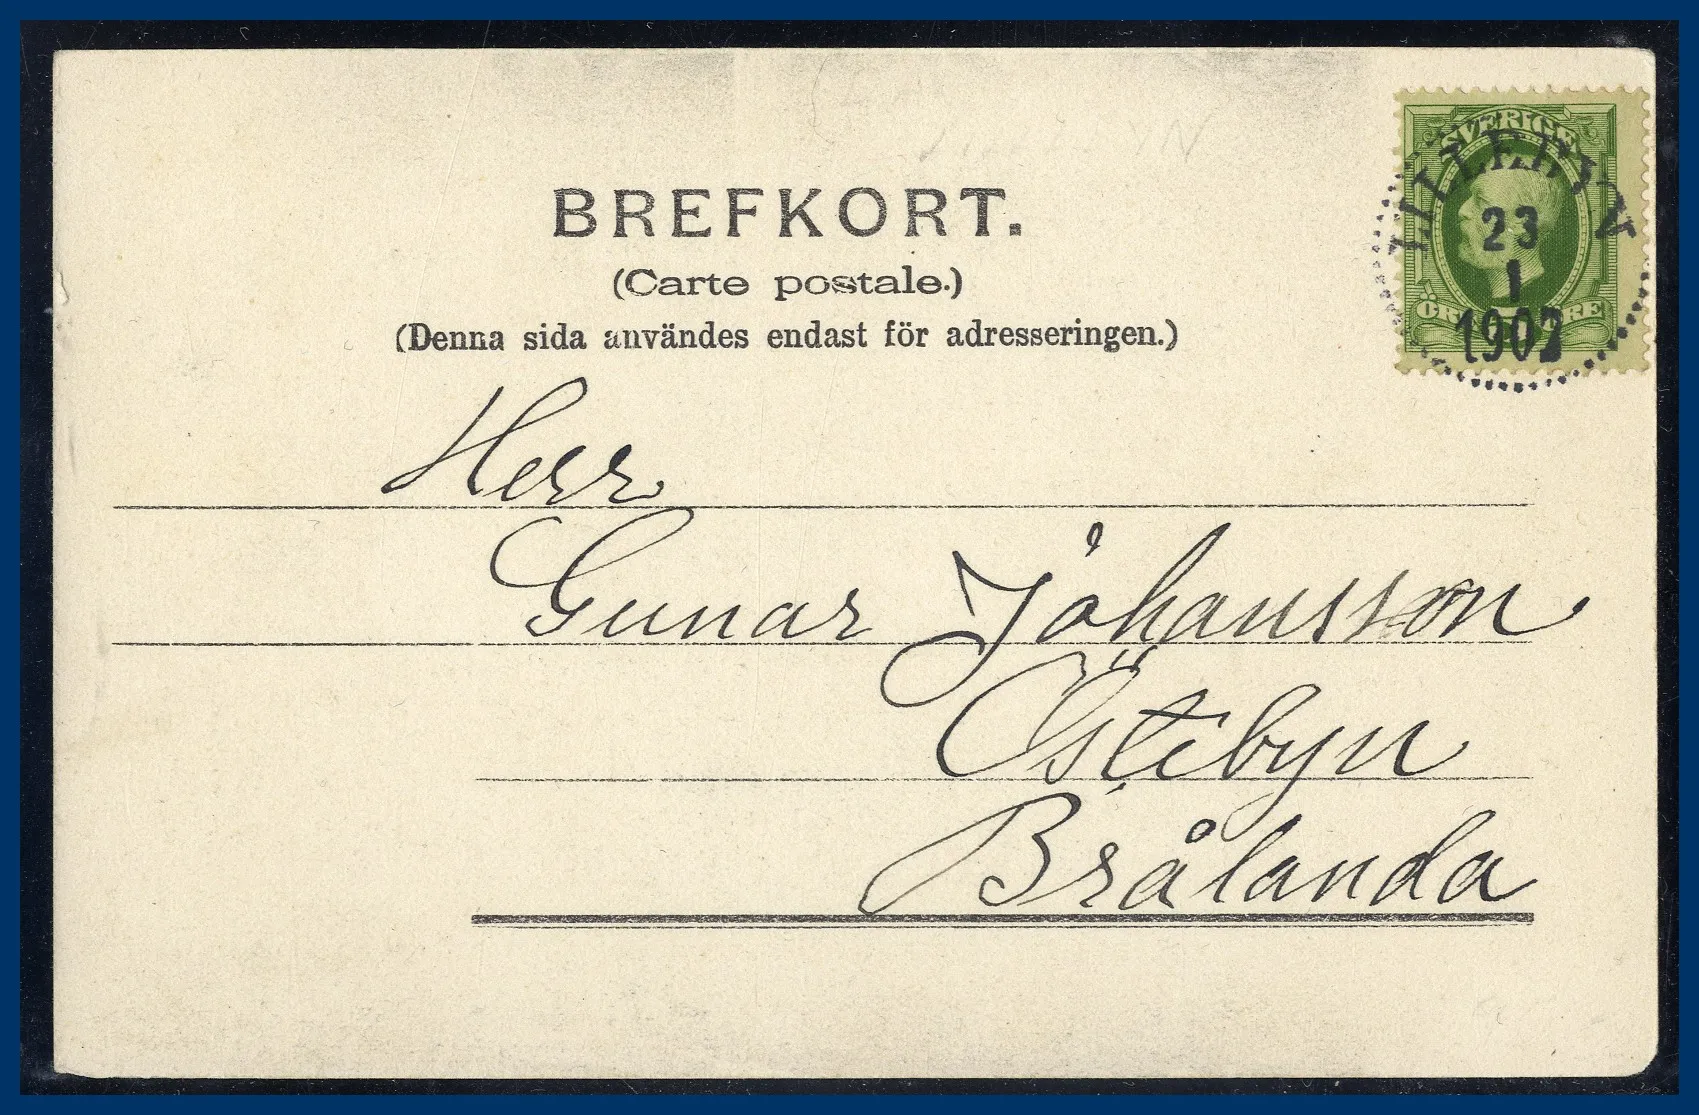 BREFKORT.
(Carte postale.)
(Denna sida användes endast för adresseringen.)
SVERIGE
LILLEBYN
23
1
1902
ÖRE ÖRE
Herr
Gunar Johansson
Östebyn
Brålanda